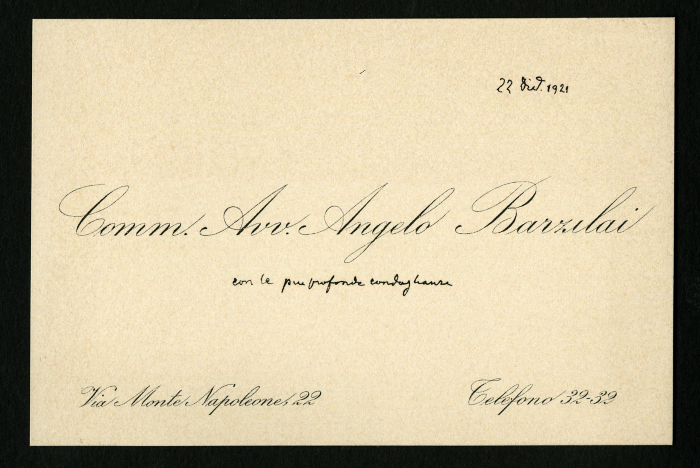 22 Dic. 1921
Comm. Avv. Angelo Barzilai
con le piu profonde condoglianze
Via Monte Napoleone, 22
Telefono 32-32